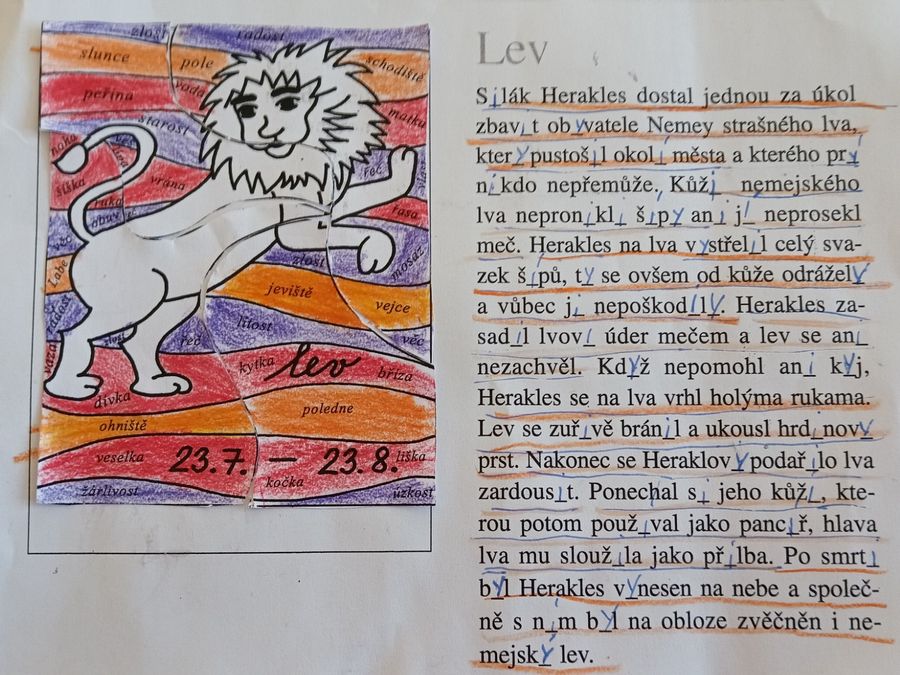 Lev
Silák Herakles dostal jednou za úkol
zbavit obyvatele Nemey strašného lva,
který pustošil okolí města a kterého prý
nikdo nepřemůže. Kůži nemejského
lva nepronikli šípy ani jí neprosekl
meč. Herakles na lva vystřelil celý sva-
zek šípů, ty se ovšem od kůže odrážely
a vůbec ji nepoškodily. Herakles za-
sadil lvovi úder mečem a lev se ani
nezachvěl. Když nepomohl ani kyj,
Herakles se na lva vrhl holýma rukama.
Lev se zuřivě bránil a ukousl hrdinovy
prst. Nakonec se Heraklovy podařilo lva
zardousit. Ponechal si jeho kůži, kte-
rou potom používal jako pancíř, hlava
lva mu sloužila jako přilba. Po smrti
byl Herakles vynesen na nebe a společ-
ně s ním byl na obloze zvěčněn i ne-
mejský lev.
zlost radost
slunce pole schodiště
peřina voda matka
starost
noha řeč
šiška vrána
ruka řasa
obuv
věc zlost mosaz
Labe
jeviště vejce
radost lítost
řeč věc
váza kytka lev bříza
dívka poledne
ohniště
veselka 23.7. — 23.8. liška
kočka
žárlivost úzkost